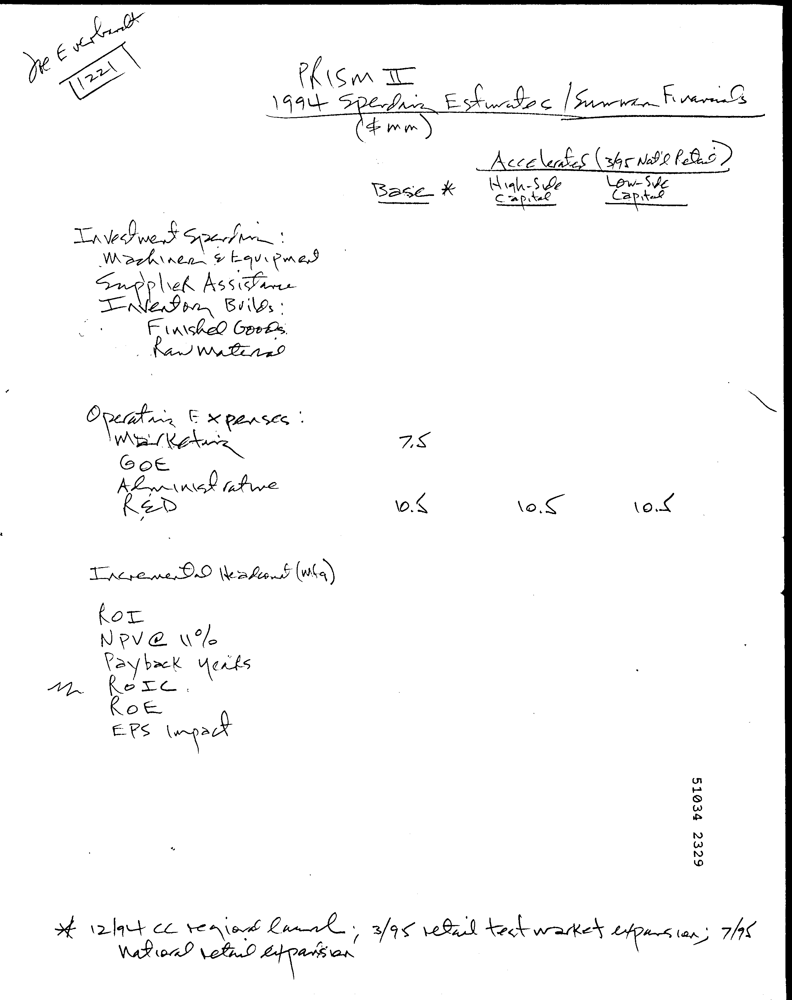 Joe Everbardt
1221
PRISM II
1994 Spending Estimates / Summary Financials
($ mm)
Accelerated (3/95 Nat'l Retail)
Base * High-Side Low-Side
Capital Capital
Investment Spending:
Machinery & Equipment
Supplier Assistance
Inventory Builds:
Finished Goods
Raw Material
Operating Expenses:
Marketing 7.5
GOE
Administrative
R&D 10.5 10.5 10.5
Incremental Headcount (mfg)
ROI
NPV @ 11%
Payback years
ROIC
ROE
EPS Impact
51034 2329
* 12/94 CC regional launch; 3/95 retail test market expansion; 7/95
national retail expansion